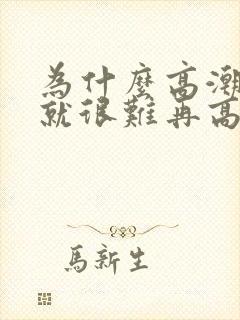 為什麼高潮
就很難再高
馬新生